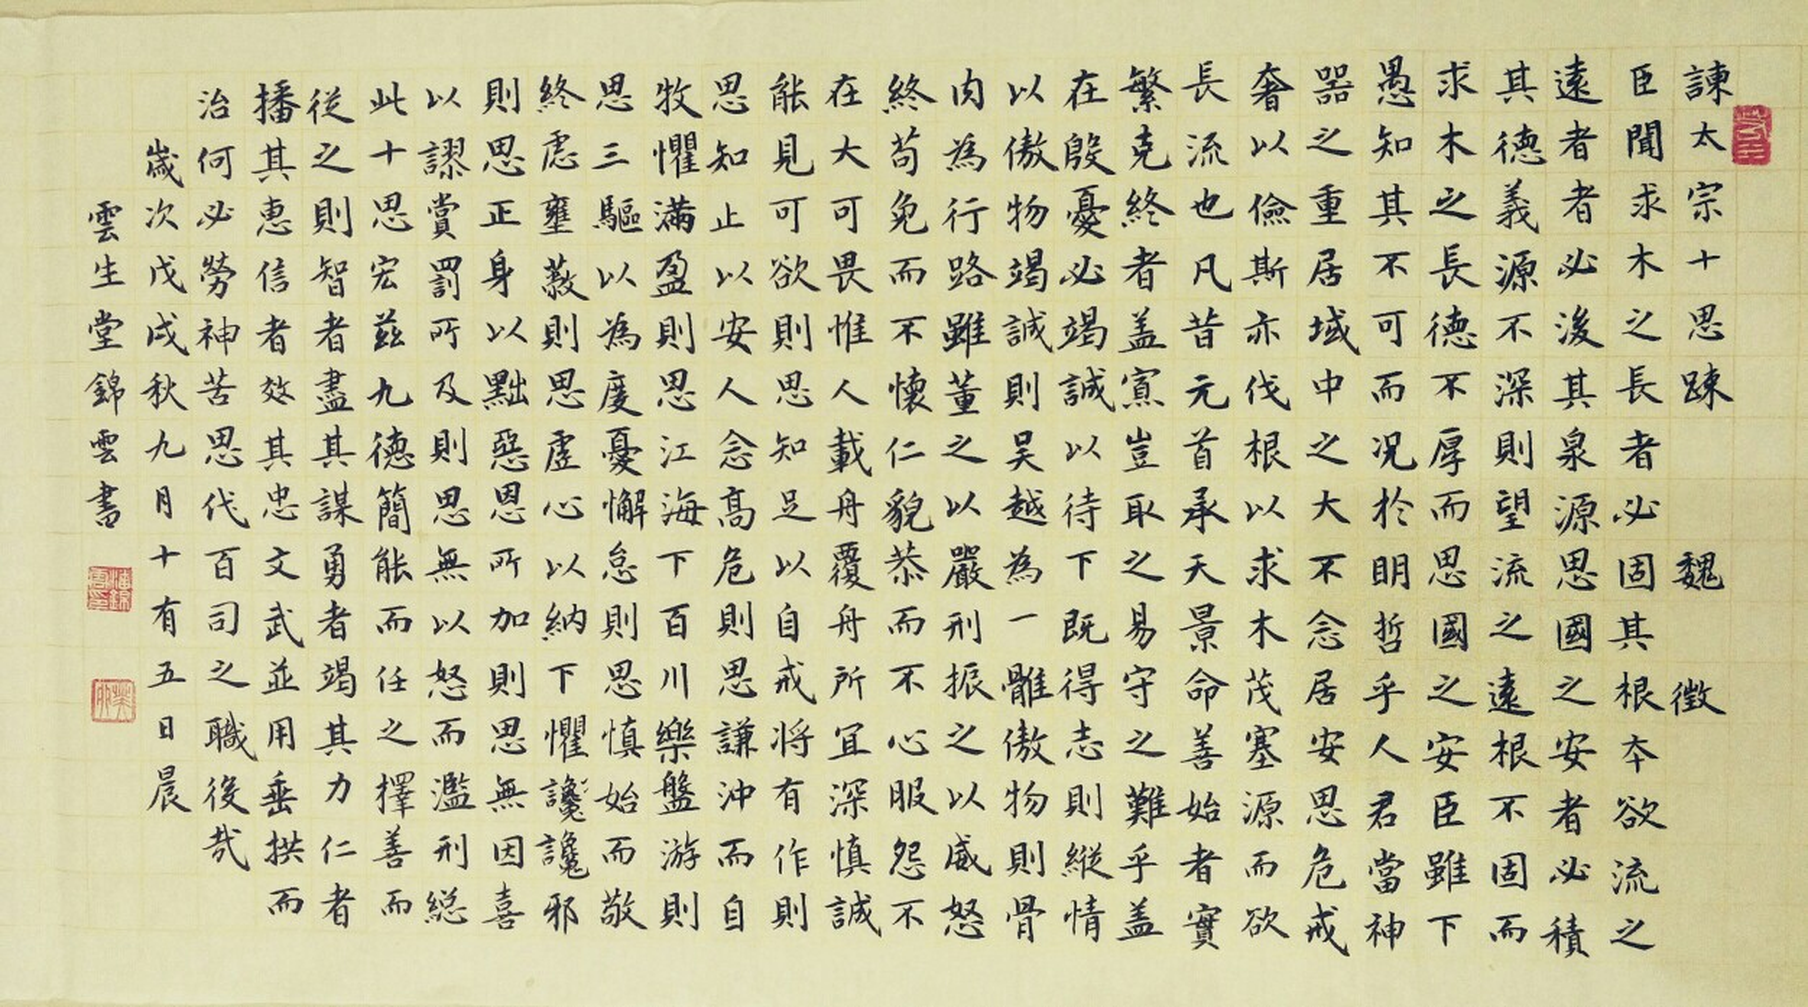 諫太宗十思踈 魏徵
臣聞求木之長者必固其根本欲流之
遠者者必浚其泉源思國之安者必積
其德義源不深則望流之遠根不固而
求木之長德不厚而思國之安臣雖下
愚知其不可而况於明哲乎人君當神
器之重居域中之大不念居安思危戒
奢以儉斯亦伐根以求木茂塞源而欲
長流也凡昔元首承天景命善始者實
繁克終者盖寡豈取之易守之難乎盖
在殷憂必竭誠以待下既得志則縱情
以傲物竭誠則吴越為一傲物則骨
肉為行路雖董之以嚴刑振之以威怒
終苟免而不懷仁貌恭而不心服怨不
在大可畏惟人載舟覆舟所宜深慎誠
能見可欲則思知足以自戒将有作則
思知止以安人念高危則思謙沖而自
牧懼滿盈則思江海下百川樂盤游則
思三驅以為度憂懈怠則思慎始而敬
終慮壅蔽則思虛心以納下懼讒讒邪
則思正身以黜惡恩所加則思無因喜
以謬賞罰所及則思無以怒而濫刑総
此十思宏兹九德簡能而任之擇善而
從之則智者盡其謀勇者竭其力仁者
播其惠信者效其忠文武並用垂拱而
治何必勞神苦思代百司之職後哉
歲次戊戌秋九月十有五日晨
雲生堂錦雲書